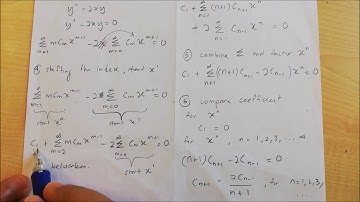 y' = 2xy
y' - 2xy = 0
∞Σm=1 m Cm x^m-1 - 2 ∞Σm=0 Cm x^m+1 = 0
④ shifting the index, start x'
∞Σm=1 m Cm x^m-1 - 2 ∞Σm=0 Cm x^m+1 = 0
start x° start x'
C1 + ∞Σm=2 m Cm x^m-1 - 2 ∞Σm=0 Cm x^m+1 = 0
start x'
C1 + ∞Σn=1 (n+1) Cn+1 x^n
+ 2 ∞Σn=1 Cn-1 x^n = 0
⑤ combine Σ and factor x^n
C1 + ∞Σn=1 ((n+1) Cn+1 - 2Cn-1) x^n = 0
⑥ compare coefficient
for x°
C1 = 0
for x^n, n = 1, 2, 3, ...
(n+1) Cn+1 - 2Cn-1 = 0
Cn+1 = 2Cn-1 / n+1, for n = 1, 2, 3, ...